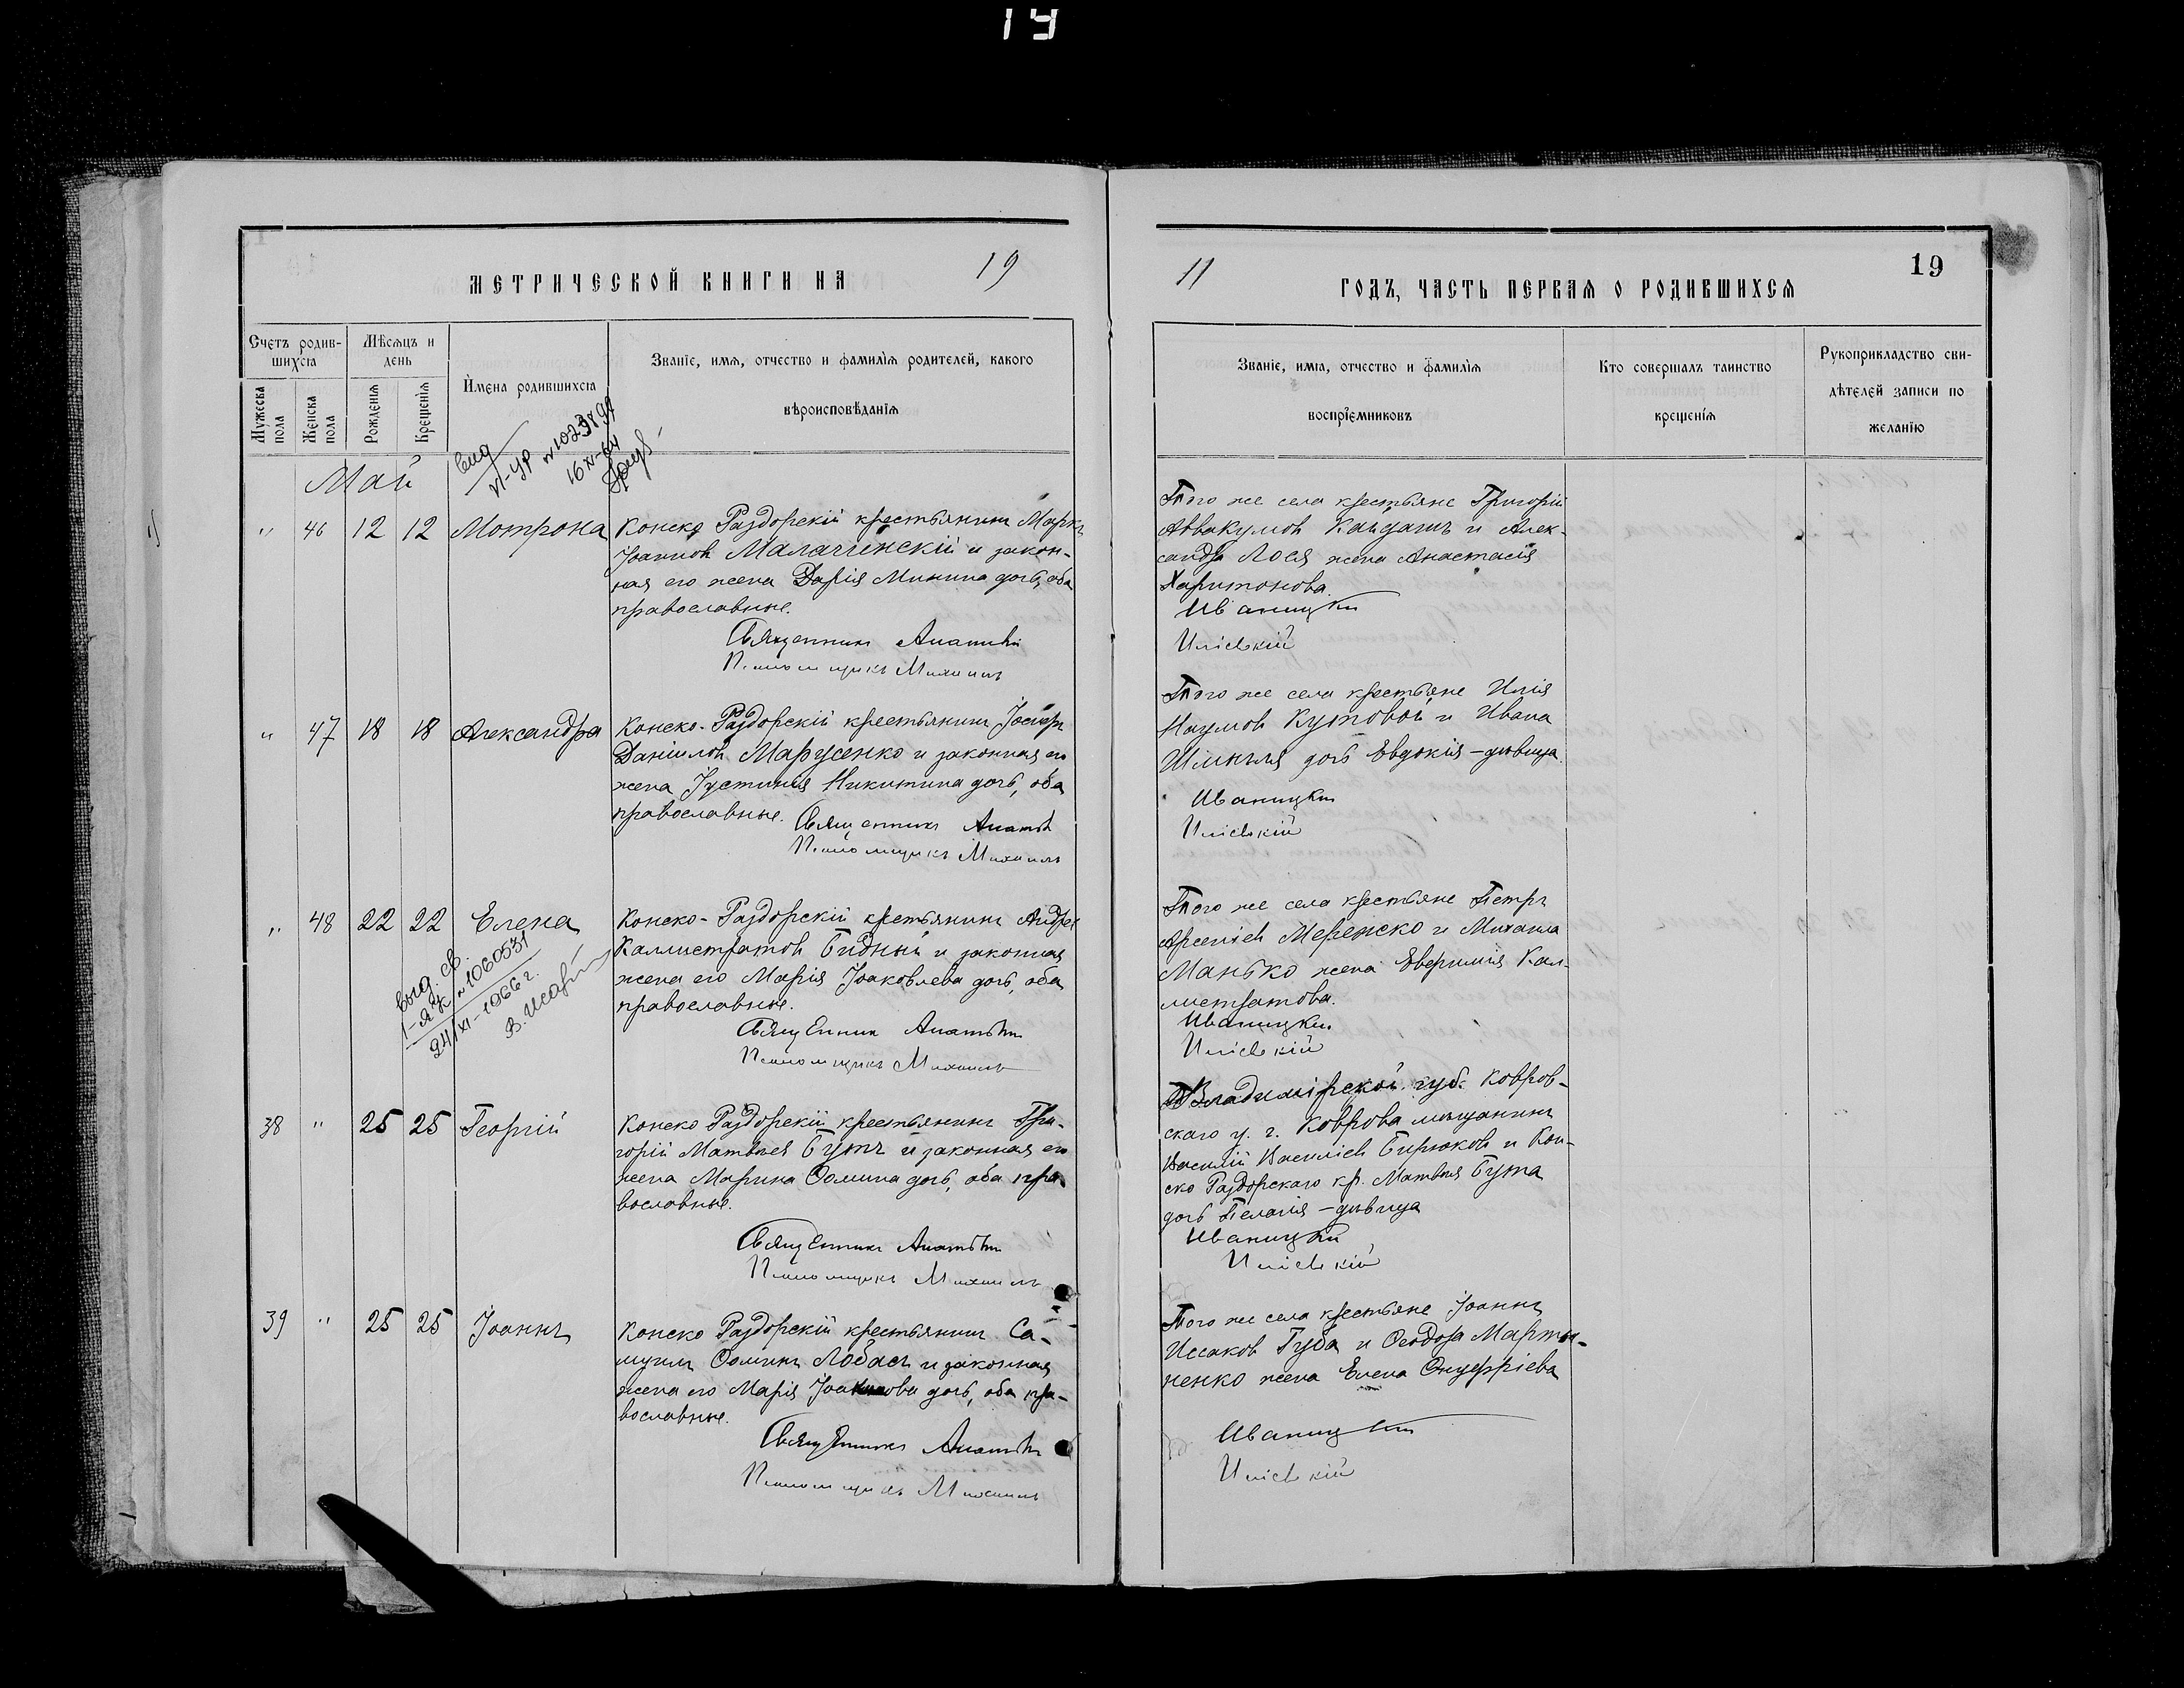 19
МЕТРИЧЕСКОЙ КНИГИ НА 19
11 ГОДЪ, ЧАСТЬ ПЕРВАЯ О РОДИВШИХСЯ
19
Счетъ родив-
шихся
Мужеска пола
Женска пола
Мѣсяцъ и
день
Рожденія
Крещенія
Имена родившихся
Званіе, имя, отчество и фамилія родителей, какого
вѣроисповѣданія
Званіе, имя, отчество и фамилія
воспріемниковъ
Кто совершалъ таинство
крещенія
Рукоприкладство сви-
дѣтелей записи по
желанію
Май
" 46 12 12 Мотрона
Конско Раздорскій крестьянинъ Маркъ
Іоанновъ Малачинскій и закон-
ная его жена Дарія Минина дочь, оба
православные.
Священникъ
Псаломщикъ Михаилъ
Того же села крестьяне Григорій
Аввакумовъ Кандашъ и Алек-
сандра Лося жена Анастасія
Харитонова.
Иваницкій
" 47 18 18 Александра
Конско-Раздорскій крестьянинъ Іосифъ
Даніиловъ Марусенко и законная его
жена Іустинія Никитина дочь, оба
православные.
Священникъ
Псаломщикъ Михаилъ
Того же села крестьяне Илія
Наумовъ Кутовой и Ивана
дочь Евдокія - дѣвица.
Иваницкій
" 48 22 22 Елена
выд. св.
1-ЯК № 1060531
24/XI-1966 г.
Конско-Раздорскій крестьянинъ Андрей
Каллистратовъ Бидный и законная
жена его Марія Іоаковлева дочь, оба
православные.
Священникъ
Псаломщикъ Михаилъ
Того же села крестьяне Петръ
Арсеніевъ и Михаила
Манько жена Евфимія Кал-
листратова.
Иваницкій
38 " 25 25 Георгій
Конско Раздорскій крестьянинъ Гри-
горій Матвѣевъ Бутъ и законная его
жена Марина Ѳомина дочь, оба пра-
вославные.
Священникъ
Псаломщикъ Михаилъ
Владимірской губ. Ковров-
скаго у. г. Коврова мѣщанинъ
Василій Василіевъ Бирюковъ и Кон-
ско Раздорскаго кр. Матвѣя Бута
дочь Пелагія - дѣвица
Иваницкій
39 " 25 25 Іоаннъ
Конско Раздорскій крестьянинъ Са-
муилъ Ѳоминъ Лобасъ и законная
жена его Марія дочь, оба пра-
вославные.
Священникъ
Псаломщикъ Михаилъ
Того же села крестьяне Іоаннъ
Исааковъ Губа и Ѳеодора Марты-
ненко жена Елена Онуфріева
Иваницкій